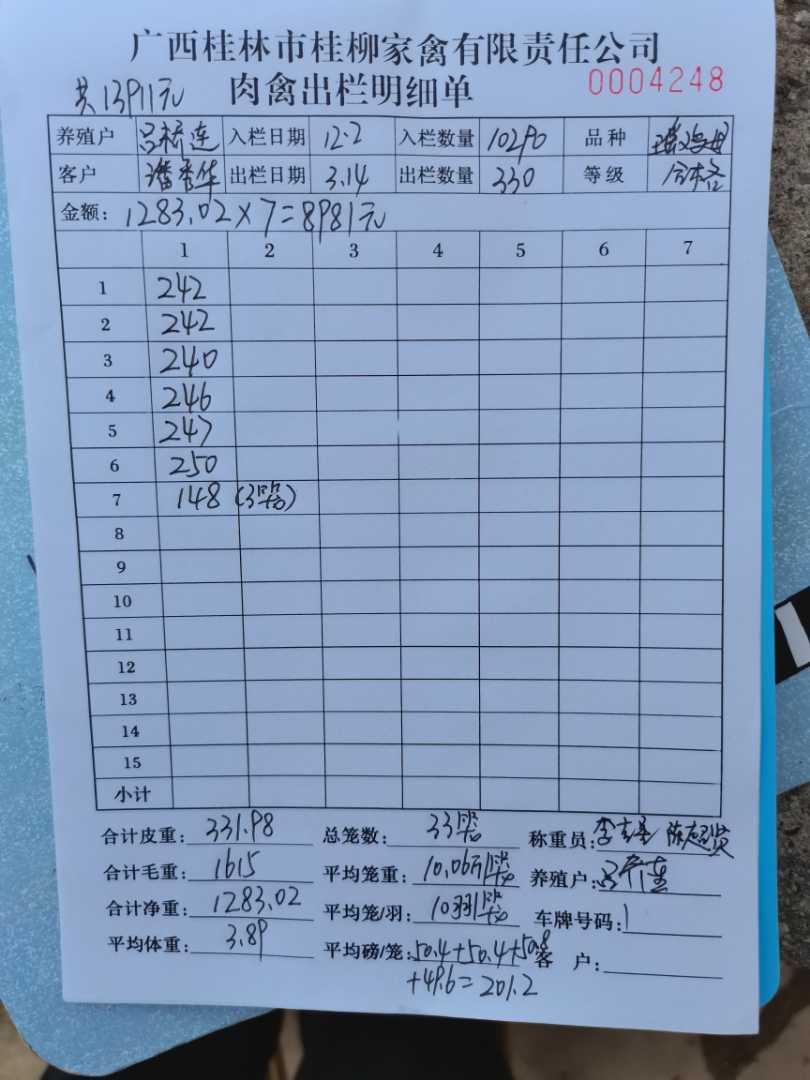 广西桂林市桂柳家禽有限责任公司
共13911元 肉禽出栏明细单 0004248
养殖户 吕桥连 入栏日期 12.2 入栏数量 10290 品种
客户 潘秀华 出栏日期 3.14 出栏数量 330 等级 合格
金额: 1283.02×7=8981元
1 2 3 4 5 6 7
1 242
2 242
3 240
4 246
5 247
6 250
7 148 (3笼)
8
9
10
11
12
13
14
15
小计
合计皮重: 331.98 总笼数: 33笼 称重员:
合计毛重: 1615 平均笼重: 10.06 养殖户:
合计净重: 1283.02 平均笼/羽: 10羽/笼 车牌号码:
平均体重: 3.89 平均磅/笼: 50.4+50.4+50.8 客 户:
+49.6=201.2